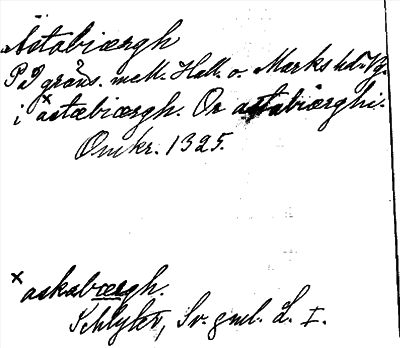 Astabiærgh
På gräns. mell. Hall. o. Marks hd. Vg.
i ˣastæbiærgh. Or astabiærghi.
Omkr. 1325.
ˣaskabærgh.
Schlyter, Sv. gml. L. I.